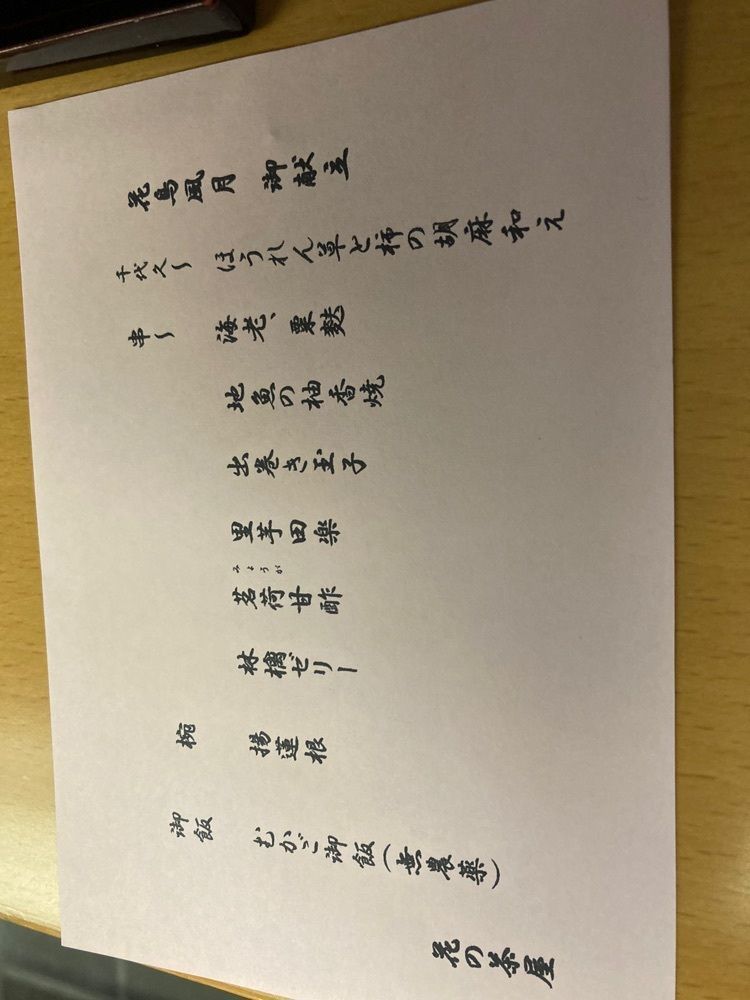 花鳥風月 御献立
千代久〜 ほうれん草と柿の胡麻和え
串〜 海老、粟麩
地魚の柚香焼
出巻き玉子
里芋田楽
みょうが
茗荷甘酢
林檎ゼリー
椀 揚蓮根
御飯 むかご御飯(無農薬)
花の茶屋